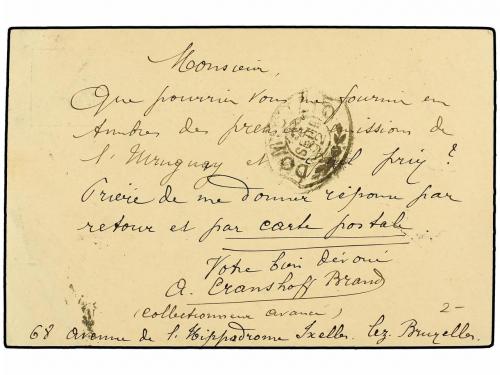 Monsieur,
Que pourriez vous me fournir en
timbres des premières émissions de
l'Uruguay et prix ?
Prière de me donner réponse par
retour et par carte postale.
Votre bien dévoué
A. Cranshoff Brand
(collectionneur avancé) 2-
68 avenue de l'Hippodrome Ixelles. lez. Bruxelles.